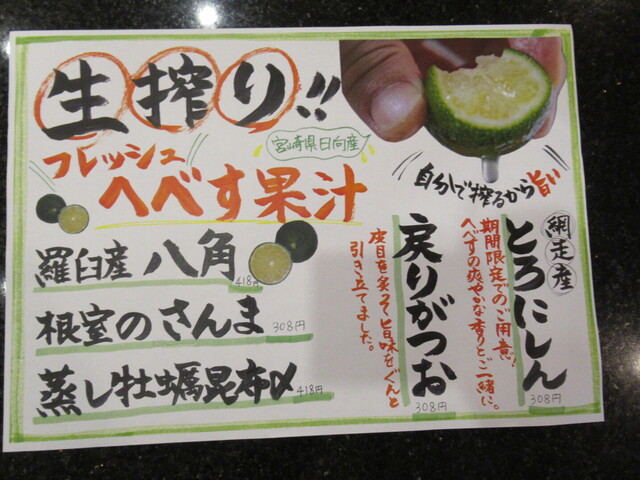 生搾り!!
宮崎県日向産
フレッシュ
へべす果汁
自分で搾るから旨い
羅臼産 八角
418円
根室のさんま
308円
蒸し牡蠣昆布〆
418円
網走産
とろにしん
308円
期間限定でのご用意!
へべすの爽やかな香りとご一緒に。
戻りがつお
308円
皮目を炙って旨味をぐんと
引き立てました。